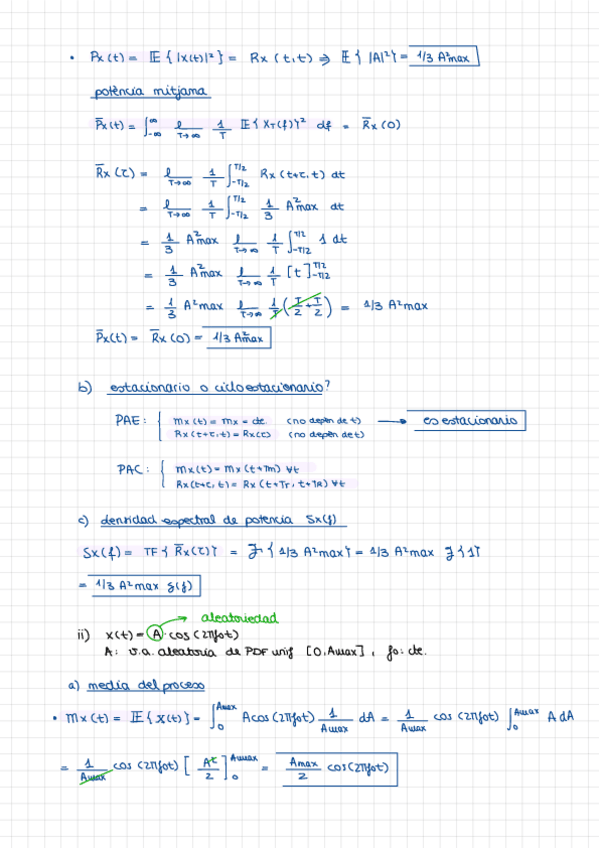 • Px(t) = 𝔼{|x(t)|²} = Rx(t,t) ⇒ 𝔼{|A|²} = 1/3 A²max
potència mitjana
P̄x(t) = ∫_{-∞}^{∞} l_{T→∞} 1/T 𝔼{XT(f)}² df = R̄x(0)
R̄x(τ) = l_{T→∞} 1/T ∫_{-T/2}^{T/2} Rx(t+τ,t) dt
= l_{T→∞} 1/T ∫_{-T/2}^{T/2} 1/3 A²max dt
= 1/3 A²max l_{T→∞} 1/T ∫_{-T/2}^{T/2} 1 dt
= 1/3 A²max l_{T→∞} 1/T [t]_{-T/2}^{T/2}
= 1/3 A²max l_{T→∞} 1/T (T/2 + T/2) = 1/3 A²max
P̄x(t) = R̄x(0) = 1/3 A²max
b) estacionario o cicloestacionario?
PAE: { mx(t) = mx = cte. (no depèn de t) → es estacionario
Rx(t+τ,t) = Rx(τ) (no depèn de t)
PAC: { mx(t) = mx(t+Tm) ∀t
Rx(t+τ,t) = Rx(t+Tr, t+TR) ∀t
c) densidad espectral de potencia Sx(f)
Sx(f) = TF{R̄x(τ)} = F{1/3 A²max} = 1/3 A²max F{1}
= 1/3 A²max δ(f)
aleatoriedad
ii) x(t) = A·cos(2πfot)
A: v.a. aleatoria de PDF unif [0,Amax], fo: cte.
a) media del proceso
• mx(t) = 𝔼{x(t)} = ∫_{0}^{Amax} A cos(2πfot) 1/Amax dA = 1/Amax cos(2πfot) ∫_{0}^{Amax} A dA
= 1/Amax cos(2πfot) [A²/2]_{0}^{Amax} = Amax/2 cos(2πfot)